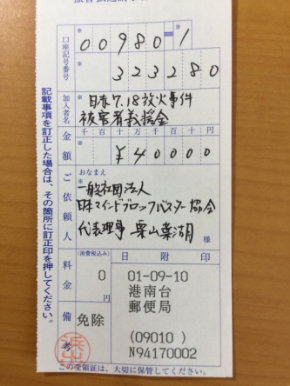 口座記号番号
00980-1
323280
加入者名
日本7.18放火事件
被害者義援金
金額
千百十万千百十円
¥40000
ご依頼人
おなまえ
一般社団法人
日本マインドブロックバスター協会
代表理事 栗山葉湖
様
料金
(消費税込み)
0
円
日附印
01-09-10
港南台
郵便局
(09010)
N94170002
備考
免除
この受領証は、大切に保管してください。
記載事項を訂正した場合は、その箇所に訂正印を押してください。